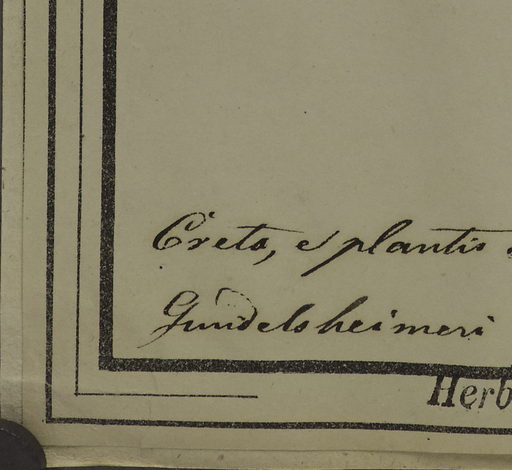 Creta, e plantis
Gundelsheimeri
Herb